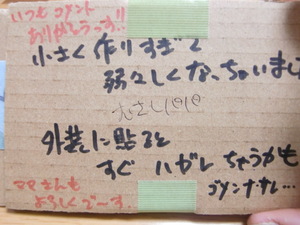 いつもコメント
ありがとうっす!!
小さく作りすぎて
弱々しくなっちゃいまし
外装に貼ると
すぐハガレちゃうかも
ゴメンナサイ…
ママさんも
よろしくでーす